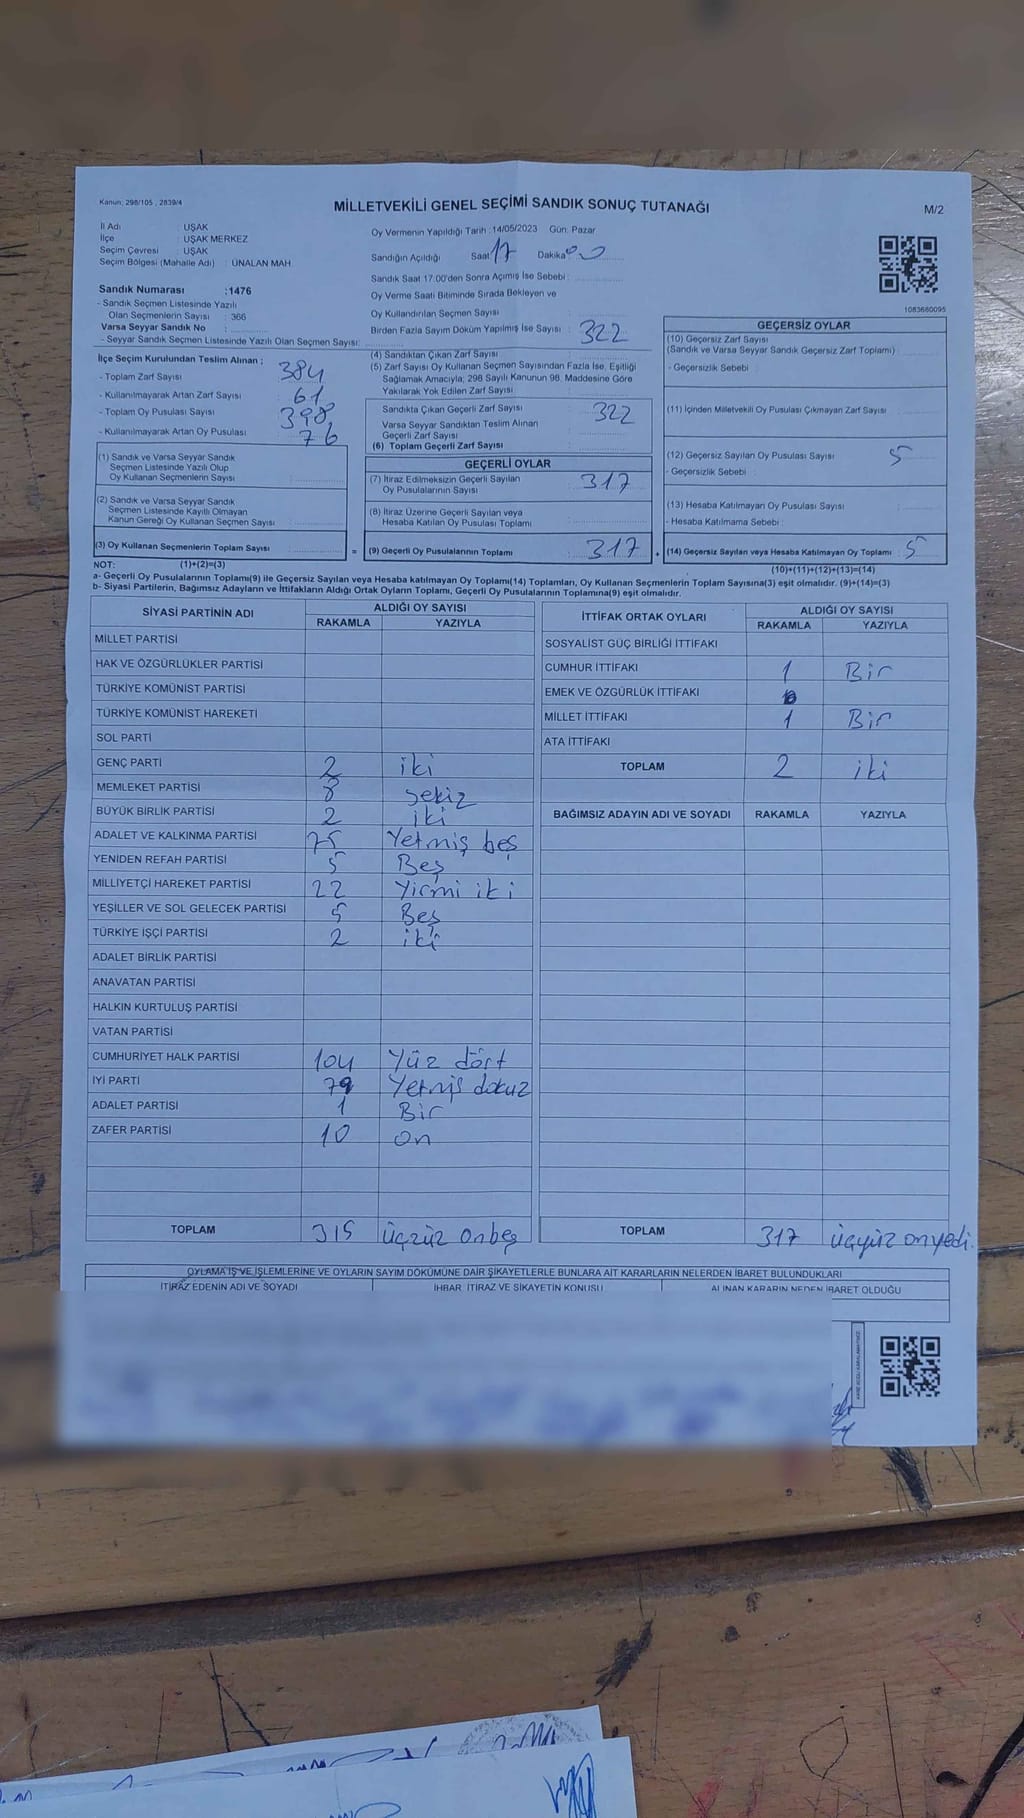 Kanun; 298/105 , 2839/4
MİLLETVEKİLİ GENEL SEÇİMİ SANDIK SONUÇ TUTANAĞI
M/2
İl Adı : UŞAK
İlçe : UŞAK MERKEZ
Seçim Çevresi : UŞAK
Seçim Bölgesi (Mahalle Adı) : ÜNALAN MAH.
Oy Vermenin Yapıldığı Tarih :14/05/2023 Gün: Pazar
Sandığın Açıldığı Saat 17 Dakika 00
Sandık Saat 17:00'den Sonra Açılmış İse Sebebi :
Oy Verme Saati Bitiminde Sırada Bekleyen ve
Oy Kullandırılan Seçmen Sayısı :
Birden Fazla Sayım Döküm Yapılmış İse Sayısı :
1083680095
Sandık Numarası :1476
- Sandık Seçmen Listesinde Yazılı
Olan Seçmenlerin Sayısı : 366
Varsa Seyyar Sandık No :
- Seyyar Sandık Seçmen Listesinde Yazılı Olan Seçmen Sayısı:
İlçe Seçim Kurulundan Teslim Alınan ;
- Toplam Zarf Sayısı 384
- Kullanılmayarak Artan Zarf Sayısı : 61
- Toplam Oy Pusulası Sayısı : 398
- Kullanılmayarak Artan Oy Pusulası : 76
(1) Sandık ve Varsa Seyyar Sandık
Seçmen Listesinde Yazılı Olup
Oy Kullanan Seçmenlerin Sayısı :
(2) Sandık ve Varsa Seyyar Sandık
Seçmen Listesinde Kayıtlı Olmayan
Kanun Gereği Oy Kullanan Seçmen Sayısı :
(3) Oy Kullanan Seçmenlerin Toplam Sayısı :
(4) Sandıktan Çıkan Zarf Sayısı : 322
(5) Zarf Sayısı Oy Kullanan Seçmen Sayısından Fazla İse, Eşitliği
Sağlamak Amacıyla; 298 Sayılı Kanunun 98. Maddesine Göre
Yakılarak Yok Edilen Zarf Sayısı :
Sandıkta Çıkan Geçerli Zarf Sayısı : 322
Varsa Seyyar Sandıktan Teslim Alınan
Geçerli Zarf Sayısı :
(6) Toplam Geçerli Zarf Sayısı :
GEÇERLİ OYLAR
(7) İtiraz Edilmeksizin Geçerli Sayılan
Oy Pusulalarının Sayısı : 317
(8) İtiraz Üzerine Geçerli Sayılan veya
Hesaba Katılan Oy Pusulası Toplamı :
= (9) Geçerli Oy Pusulalarının Toplamı : 317
GEÇERSİZ OYLAR
(10) Geçersiz Zarf Sayısı
(Sandık ve Varsa Seyyar Sandık Geçersiz Zarf Toplamı) :
- Geçersizlik Sebebi :
(11) İçinden Milletvekili Oy Pusulası Çıkmayan Zarf Sayısı :
(12) Geçersiz Sayılan Oy Pusulası Sayısı : 5
- Geçersizlik Sebebi :
(13) Hesaba Katılmayan Oy Pusulası Sayısı :
- Hesaba Katılmama Sebebi :
+ (14) Geçersiz Sayılan veya Hesaba Katılmayan Oy Toplamı : 5
NOT: (1)+(2)=(3) (10)+(11)+(12)+(13)=(14)
a- Geçerli Oy Pusulalarının Toplamı(9) ile Geçersiz Sayılan veya Hesaba katılmayan Oy Toplamı(14) Toplamları, Oy Kullanan Seçmenlerin Toplam Sayısına(3) eşit olmalıdır. (9)+(14)=(3)
b- Siyasi Partilerin, Bağımsız Adayların ve İttifakların Aldığı Ortak Oyların Toplamı, Geçerli Oy Pusulalarının Toplamına(9) eşit olmalıdır.
SİYASİ PARTİNİN ADI ALDIĞI OY SAYISI
RAKAMLA YAZIYLA
MİLLET PARTİSİ
HAK VE ÖZGÜRLÜKLER PARTİSİ
TÜRKİYE KOMÜNİST PARTİSİ
TÜRKİYE KOMÜNİST HAREKETİ
SOL PARTİ
GENÇ PARTİ 2 iki
MEMLEKET PARTİSİ 8 sekiz
BÜYÜK BİRLİK PARTİSİ 2 iki
ADALET VE KALKINMA PARTİSİ 75 Yetmiş beş
YENİDEN REFAH PARTİSİ 5 Beş
MİLLİYETÇİ HAREKET PARTİSİ 22 Yirmi iki
YEŞİLLER VE SOL GELECEK PARTİSİ 5 Beş
TÜRKİYE İŞÇİ PARTİSİ 2 iki
ADALET BİRLİK PARTİSİ
ANAVATAN PARTİSİ
HALKIN KURTULUŞ PARTİSİ
VATAN PARTİSİ
CUMHURİYET HALK PARTİSİ 104 Yüz dört
İYİ PARTİ 79 Yetmiş dokuz
ADALET PARTİSİ 1 Bir
ZAFER PARTİSİ 10 on
TOPLAM 315 üçyüz onbeş
İTTİFAK ORTAK OYLARI ALDIĞI OY SAYISI
RAKAMLA YAZIYLA
SOSYALİST GÜÇ BİRLİĞİ İTTİFAKI
CUMHUR İTTİFAKI 1 Bir
EMEK VE ÖZGÜRLÜK İTTİFAKI
MİLLET İTTİFAKI 1 Bir
ATA İTTİFAKI
TOPLAM 2 iki
BAĞIMSIZ ADAYIN ADI VE SOYADI RAKAMLA YAZIYLA
TOPLAM 317 üçyüz onyedi.
OYLAMA İŞ VE İŞLEMLERİNE VE OYLARIN SAYIM DÖKÜMÜNE DAİR ŞİKAYETLERLE BUNLARA AİT KARARLARIN NELERDEN İBARET BULUNDUKLARI
İTİRAZ EDENİN ADI VE SOYADI İHBAR, İTİRAZ VE ŞİKAYETİN KONUSU ALINAN KARARIN NEDEN İBARET OLDUĞU